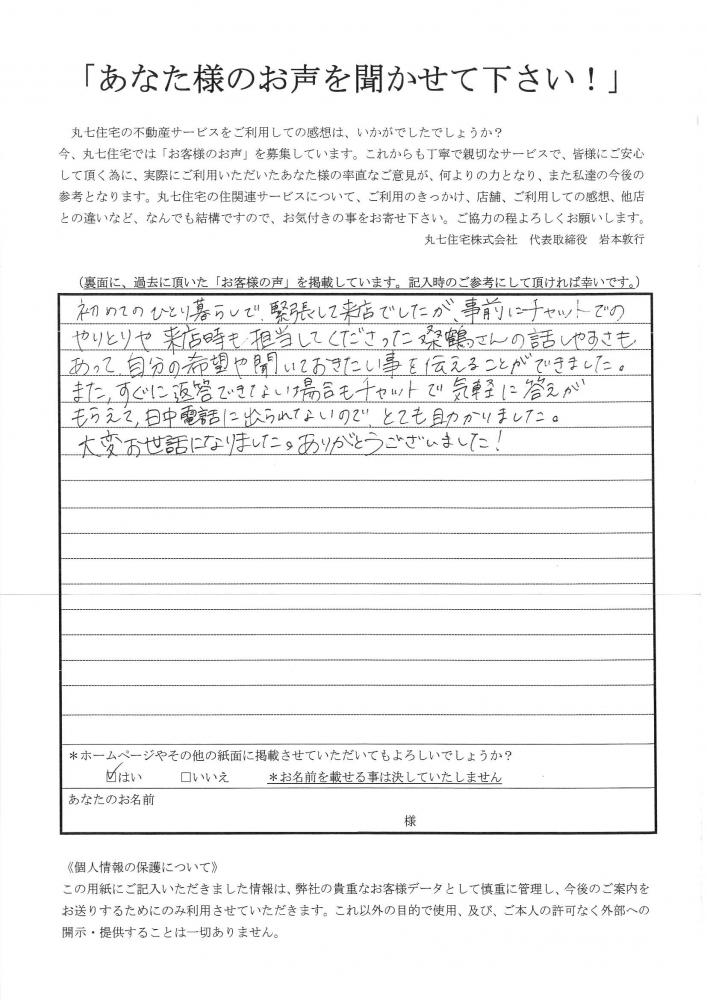 「あなた様のお声を聞かせて下さい！」
丸七住宅の不動産サービスをご利用しての感想は、いかがでしたでしょうか？
今、丸七住宅では「お客様のお声」を募集しています。これからも丁寧で親切なサービスで、皆様にご安心
して頂く為に、実際にご利用いただいたあなた様の率直なご意見が、何よりの力となり、また私達の今後の
参考となります。丸七住宅の住関連サービスについて、ご利用のきっかけ、店舗、ご利用しての感想、他店
との違いなど、なんでも結構ですので、お気付きの事をお寄せ下さい。ご協力の程よろしくお願いします。
丸七住宅株式会社　代表取締役　岩本敦行
（裏面に、過去に頂いた「お客様の声」を掲載しています。記入時のご参考にして頂ければ幸いです。）
初めてのひとり暮らしで、緊張して来店でしたが、事前にチャットでの
やりとりや 来店時も 担当してくださった 桑鶴さんの話しやすさも
あって、自分の希望や聞いておきたい事を伝えることができました。
また、すぐに返答できない場合もチャットで気軽に答えが
もらえて、日中電話に出られないので、とても助かりました。
大変お世話になりました。ありがとうございました！
＊ホームページやその他の紙面に掲載させていただいてもよろしいでしょうか？
☑はい　□いいえ　＊お名前を載せる事は決していたしません
あなたのお名前
様
《個人情報の保護について》
この用紙にご記入いただきました情報は、弊社の貴重なお客様データとして慎重に管理し、今後のご案内を
お送りするためにのみ利用させていただきます。これ以外の目的で使用、及び、ご本人の許可なく外部への
開示・提供することは一切ありません。